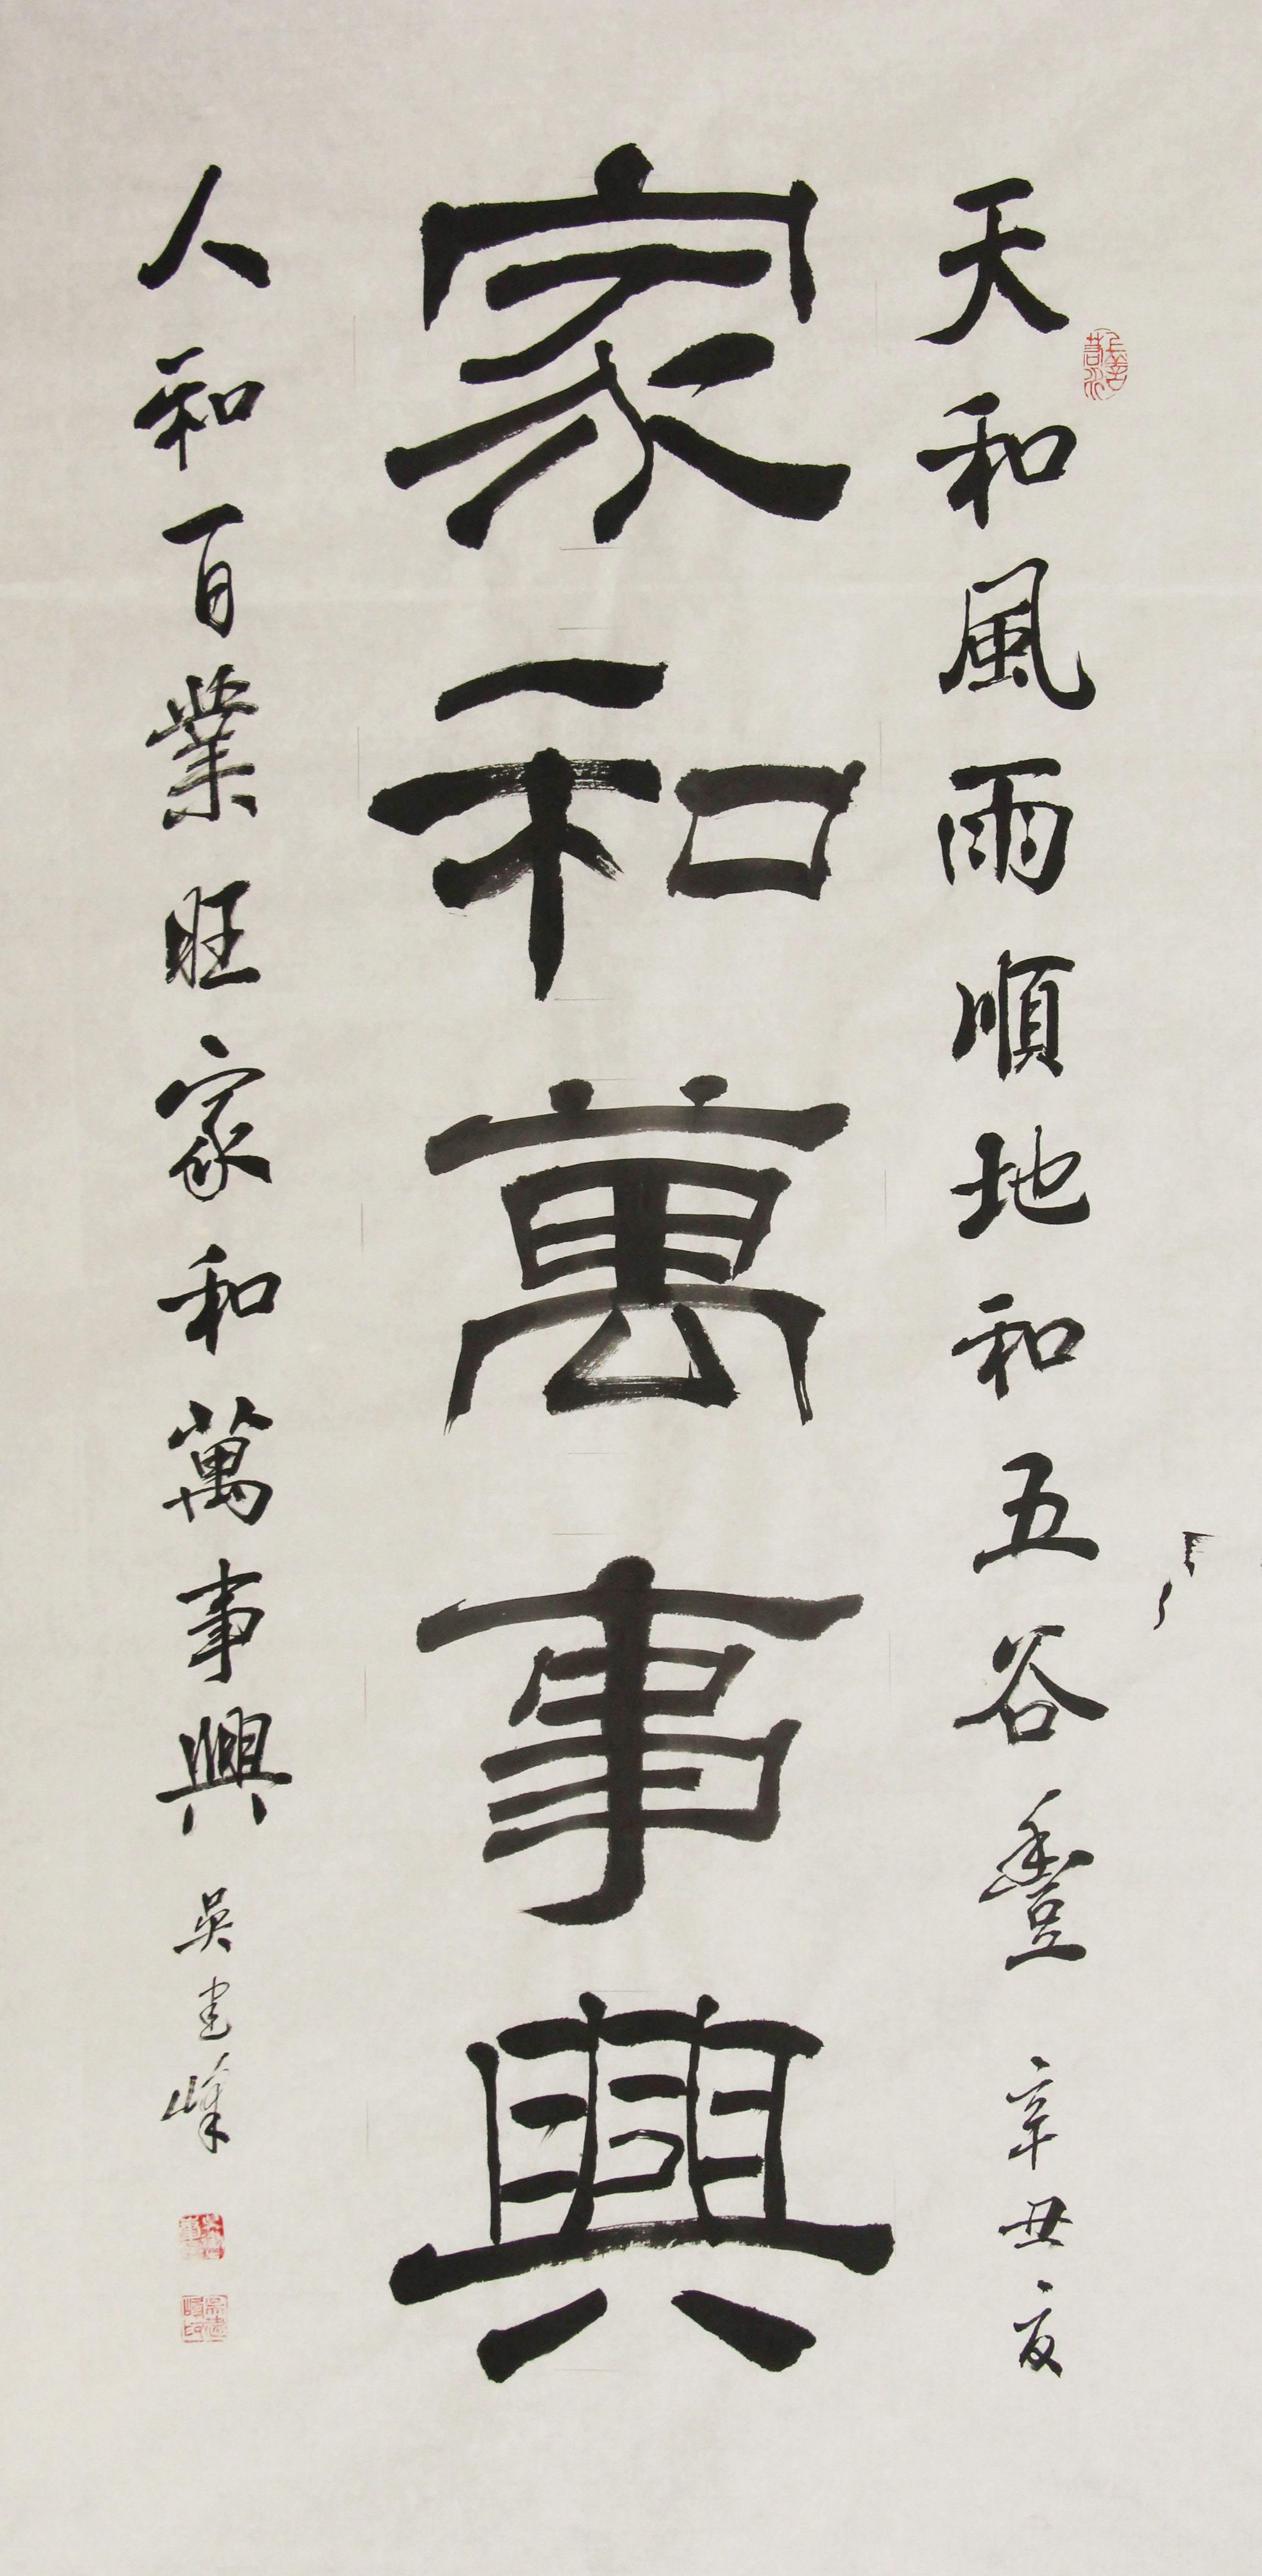 天和風雨順地和五谷豐 辛丑夏
家和萬事興
人和百業旺家和萬事興 吳建峰